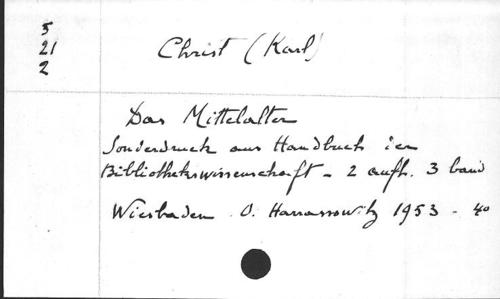 5
21
2
Christ (Karl)
Das Mittelalter
Sonderdruck aus Handbuch der
Bibliothekswissenschaft - 2 aufl. 3 band
Wiesbaden O. Harrassowitz 1953 - 40